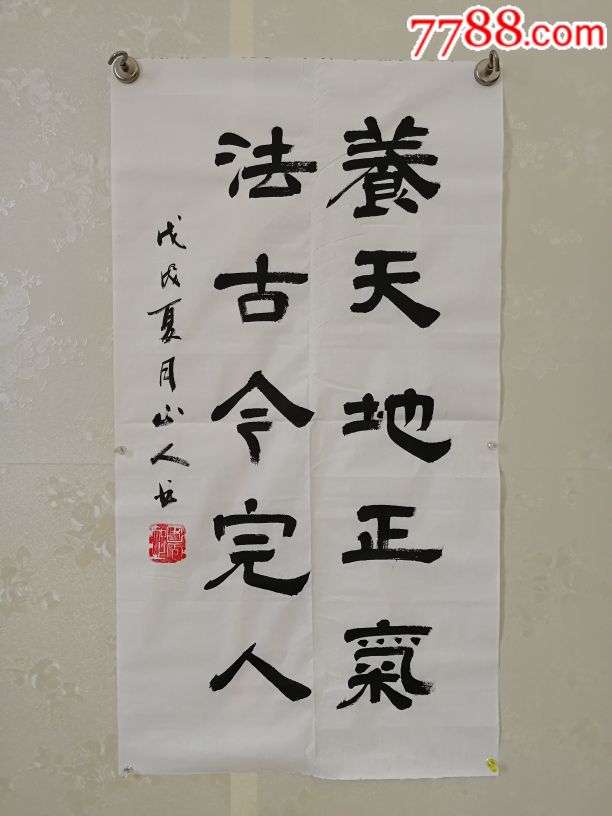 7788.com
養天地正氣
法古今完人
戊戌夏月山人书